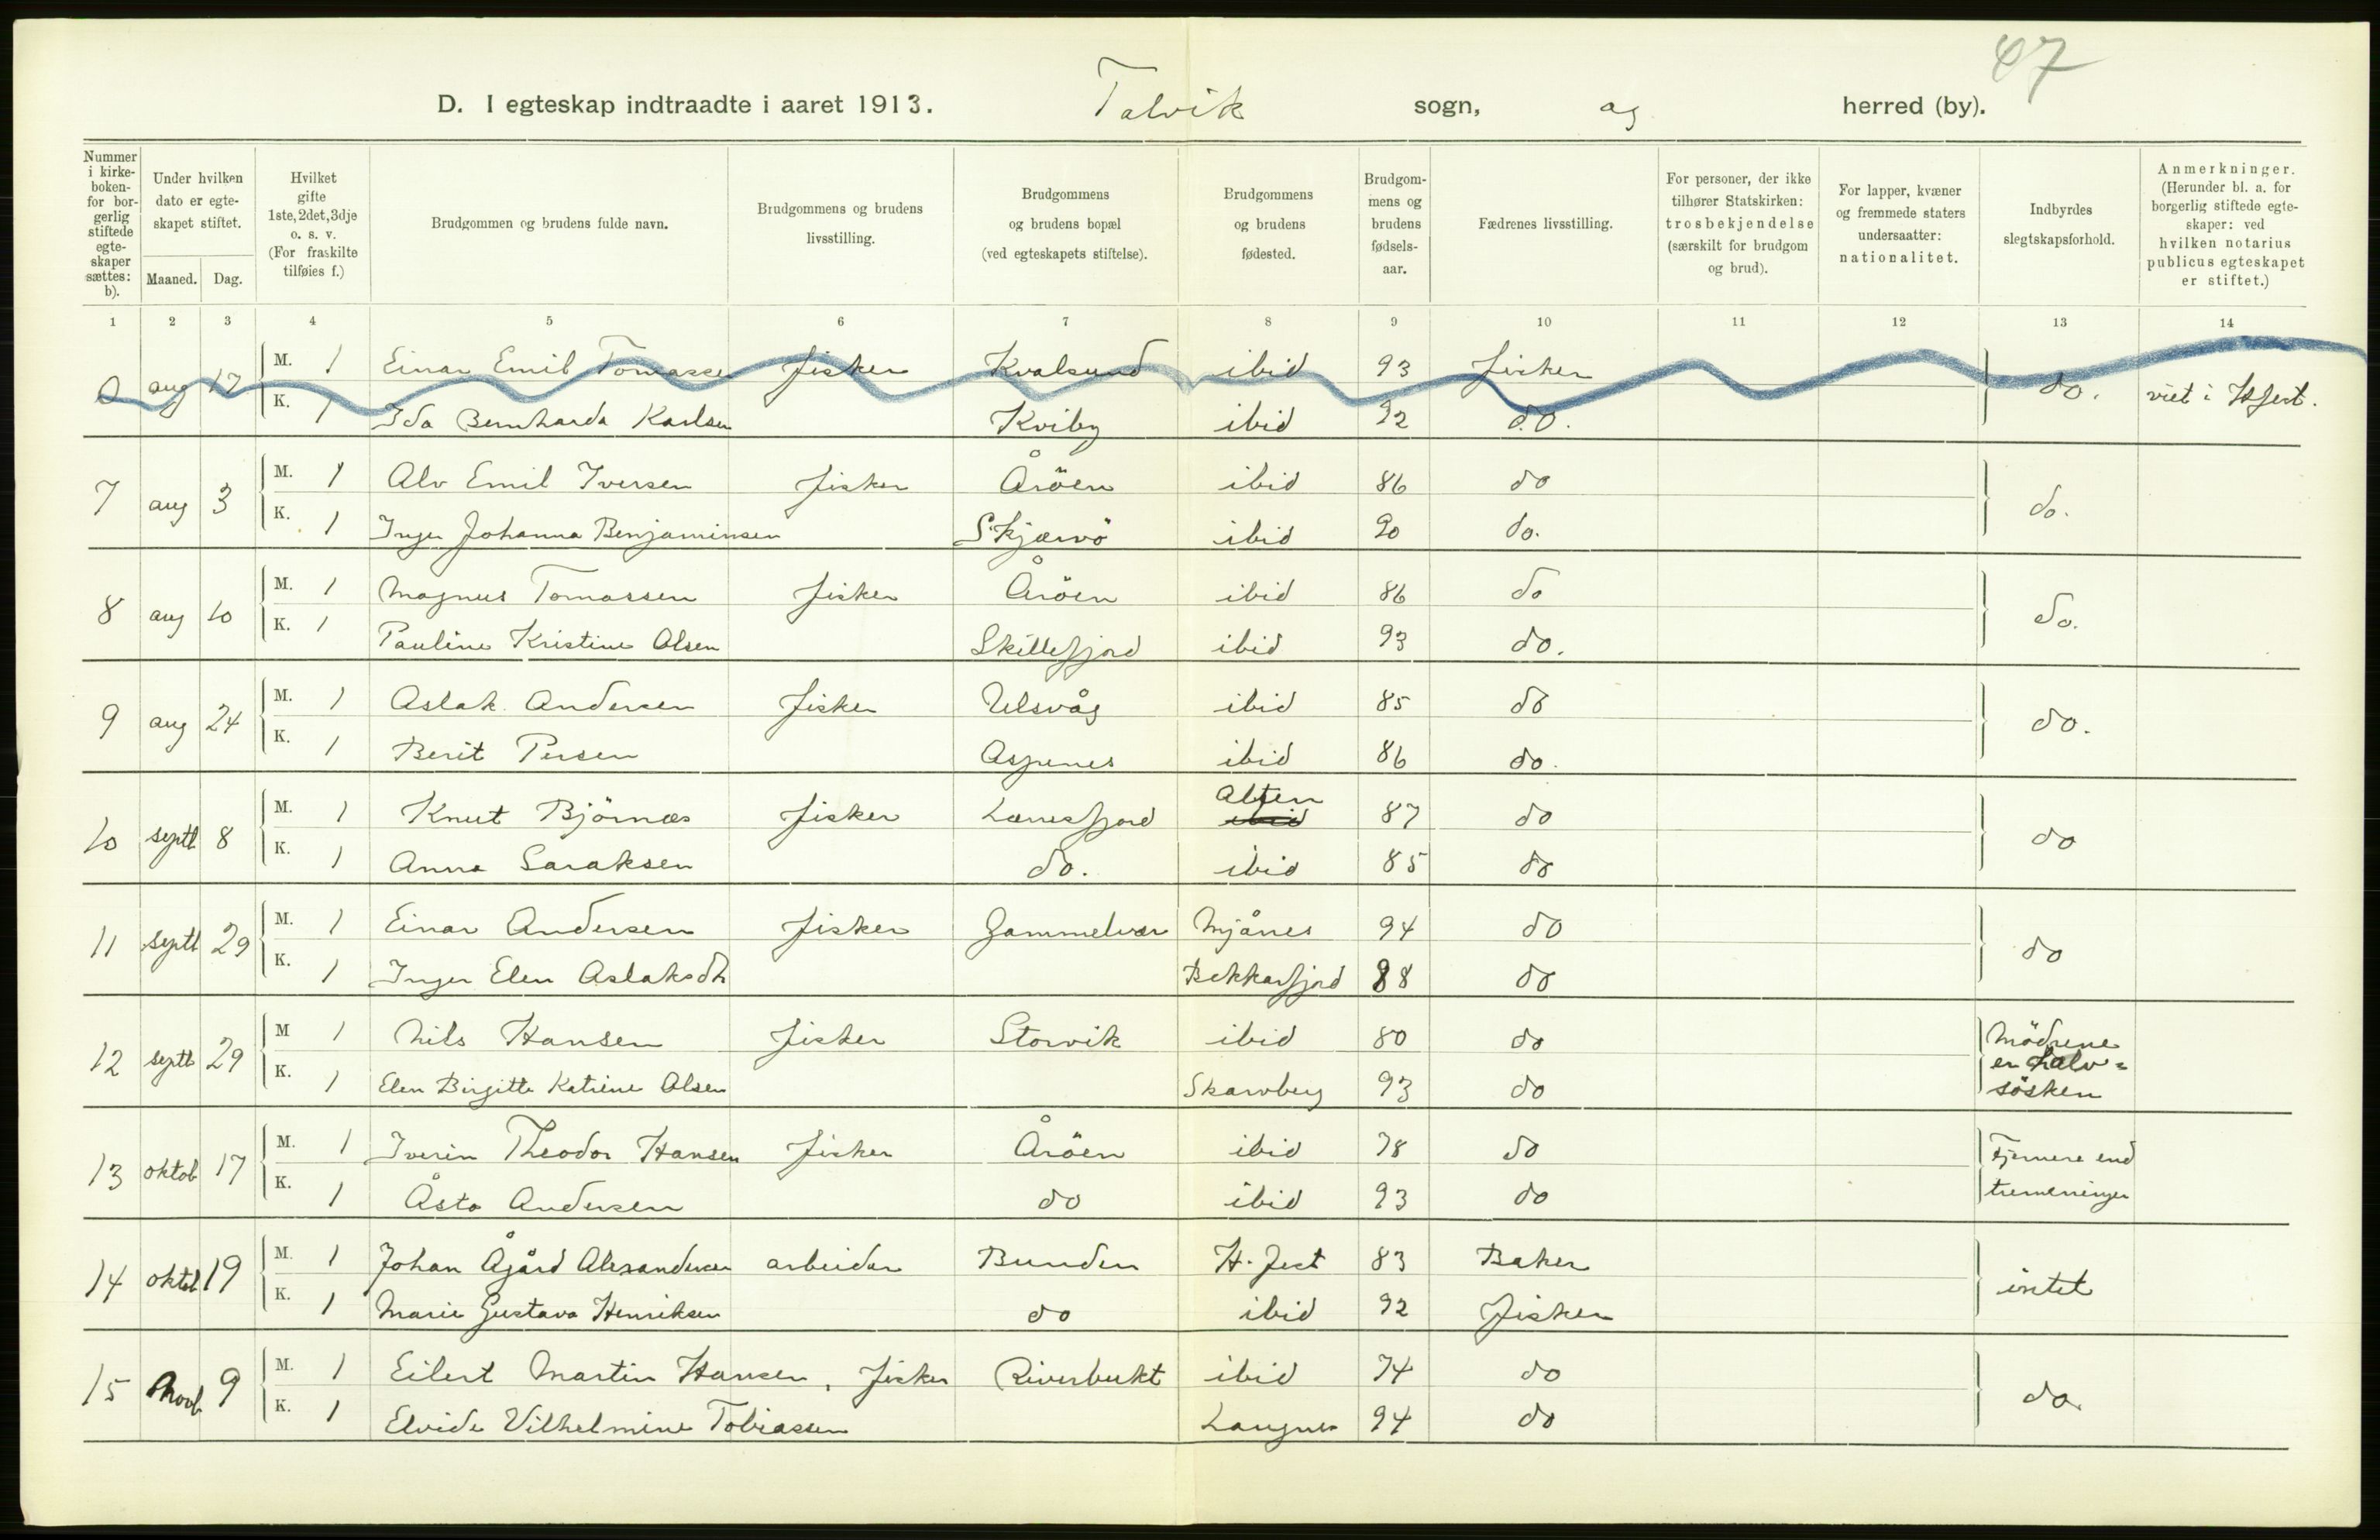 47
D. I egteskap indtraadte i aaret 1913. Talvik sogn, og herred (by).
Nummer i kirke-boken- for bor-gerlig stiftede egte-skaper sættes: b).
Under hvilken dato er egte-skapet stiftet.
Maaned. Dag.
Hvilket gifte 1ste, 2det, 3dje o. s. v. (For fraskilte tilføies f.)
Brudgommen og brudens fulde navn.
Brudgommens og brudens livsstilling.
Brudgommens og brudens bopæl (ved egteskapets stiftelse).
Brudgommens og brudens fødested.
Brudgom-mens og brudens fødsels-aar.
Fædrenes livsstilling.
For personer, der ikke tilhører Statskirken: trosbekjendelse (særskilt for brudgom og brud).
For lapper, kvæner og fremmede staters undersaatter: nationalitet.
Indbyrdes slegtskapsforhold.
Anmerkninger. (Herunder bl. a. for borgerlig stiftede egte-skaper: ved hvilken notarius publicus egteskapet er stiftet.)
1 2 3 4 5 6 7 8 9 10 11 12 13 14
0 aug 17 M. 1 Einar Emil Tomassen fisker Kvalsund ibid 93 fisker do. viet i Hfest.
K. 1 Ida Bernharda Karlsen Kviby ibid 92 do.
7 aug 3 M. 1 Alv Emil Iversen fisker Åröen ibid 86 do do.
K. 1 Inger Johanna Benjaminsen Skjærvö ibid 90 do.
8 aug 10 M. 1 Magnus Tomassen fisker Åröen ibid 86 do do.
K. 1 Pauline Kristine Olsen Skillefjord ibid 93 do.
9 aug 24 M. 1 Aslak Andersen fisker Ulsvåg ibid 85 do do.
K. 1 Berit Persen Aspenes ibid 86 do.
10 septb 8 M. 1 Knut Björnæs fisker Lærresfjord Alten ibid 87 do do
K. 1 Anna Saraksen do. ibid 85 do
11 septb 29 M. 1 Einar Andersen fisker Gammelvær Mjånes 94 do do
K. 1 Inger Elen Aslaksdh Bekkarfjord 88 do
12 septb 29 M 1 Nils Hansen fisker Storvik ibid 80 do Mödrene
er halv=
K. 1 Elen Birgitte Katrine Olsen Skarvberg 93 do søsken
13 oktob 17 M. 1 Iverin Theodor Hansen fisker Åröen ibid 78 do Fjernere end
K. 1 Åsta Andersen do ibid 93 do tremenninger
14 oktob 19 M. 1 Johan Ågård Alexandersen arbeider Bunden H. fest 83 Baker intet
K. 1 Marie Gustava Henriksen do ibid 92 fisker
15 Novb 9 M. 1 Eilert Martin Hansen, fisker Riverbukt ibid 74 do do.
K. 1 Elvide Vilhelmine Tobiassen Langnes 94 do